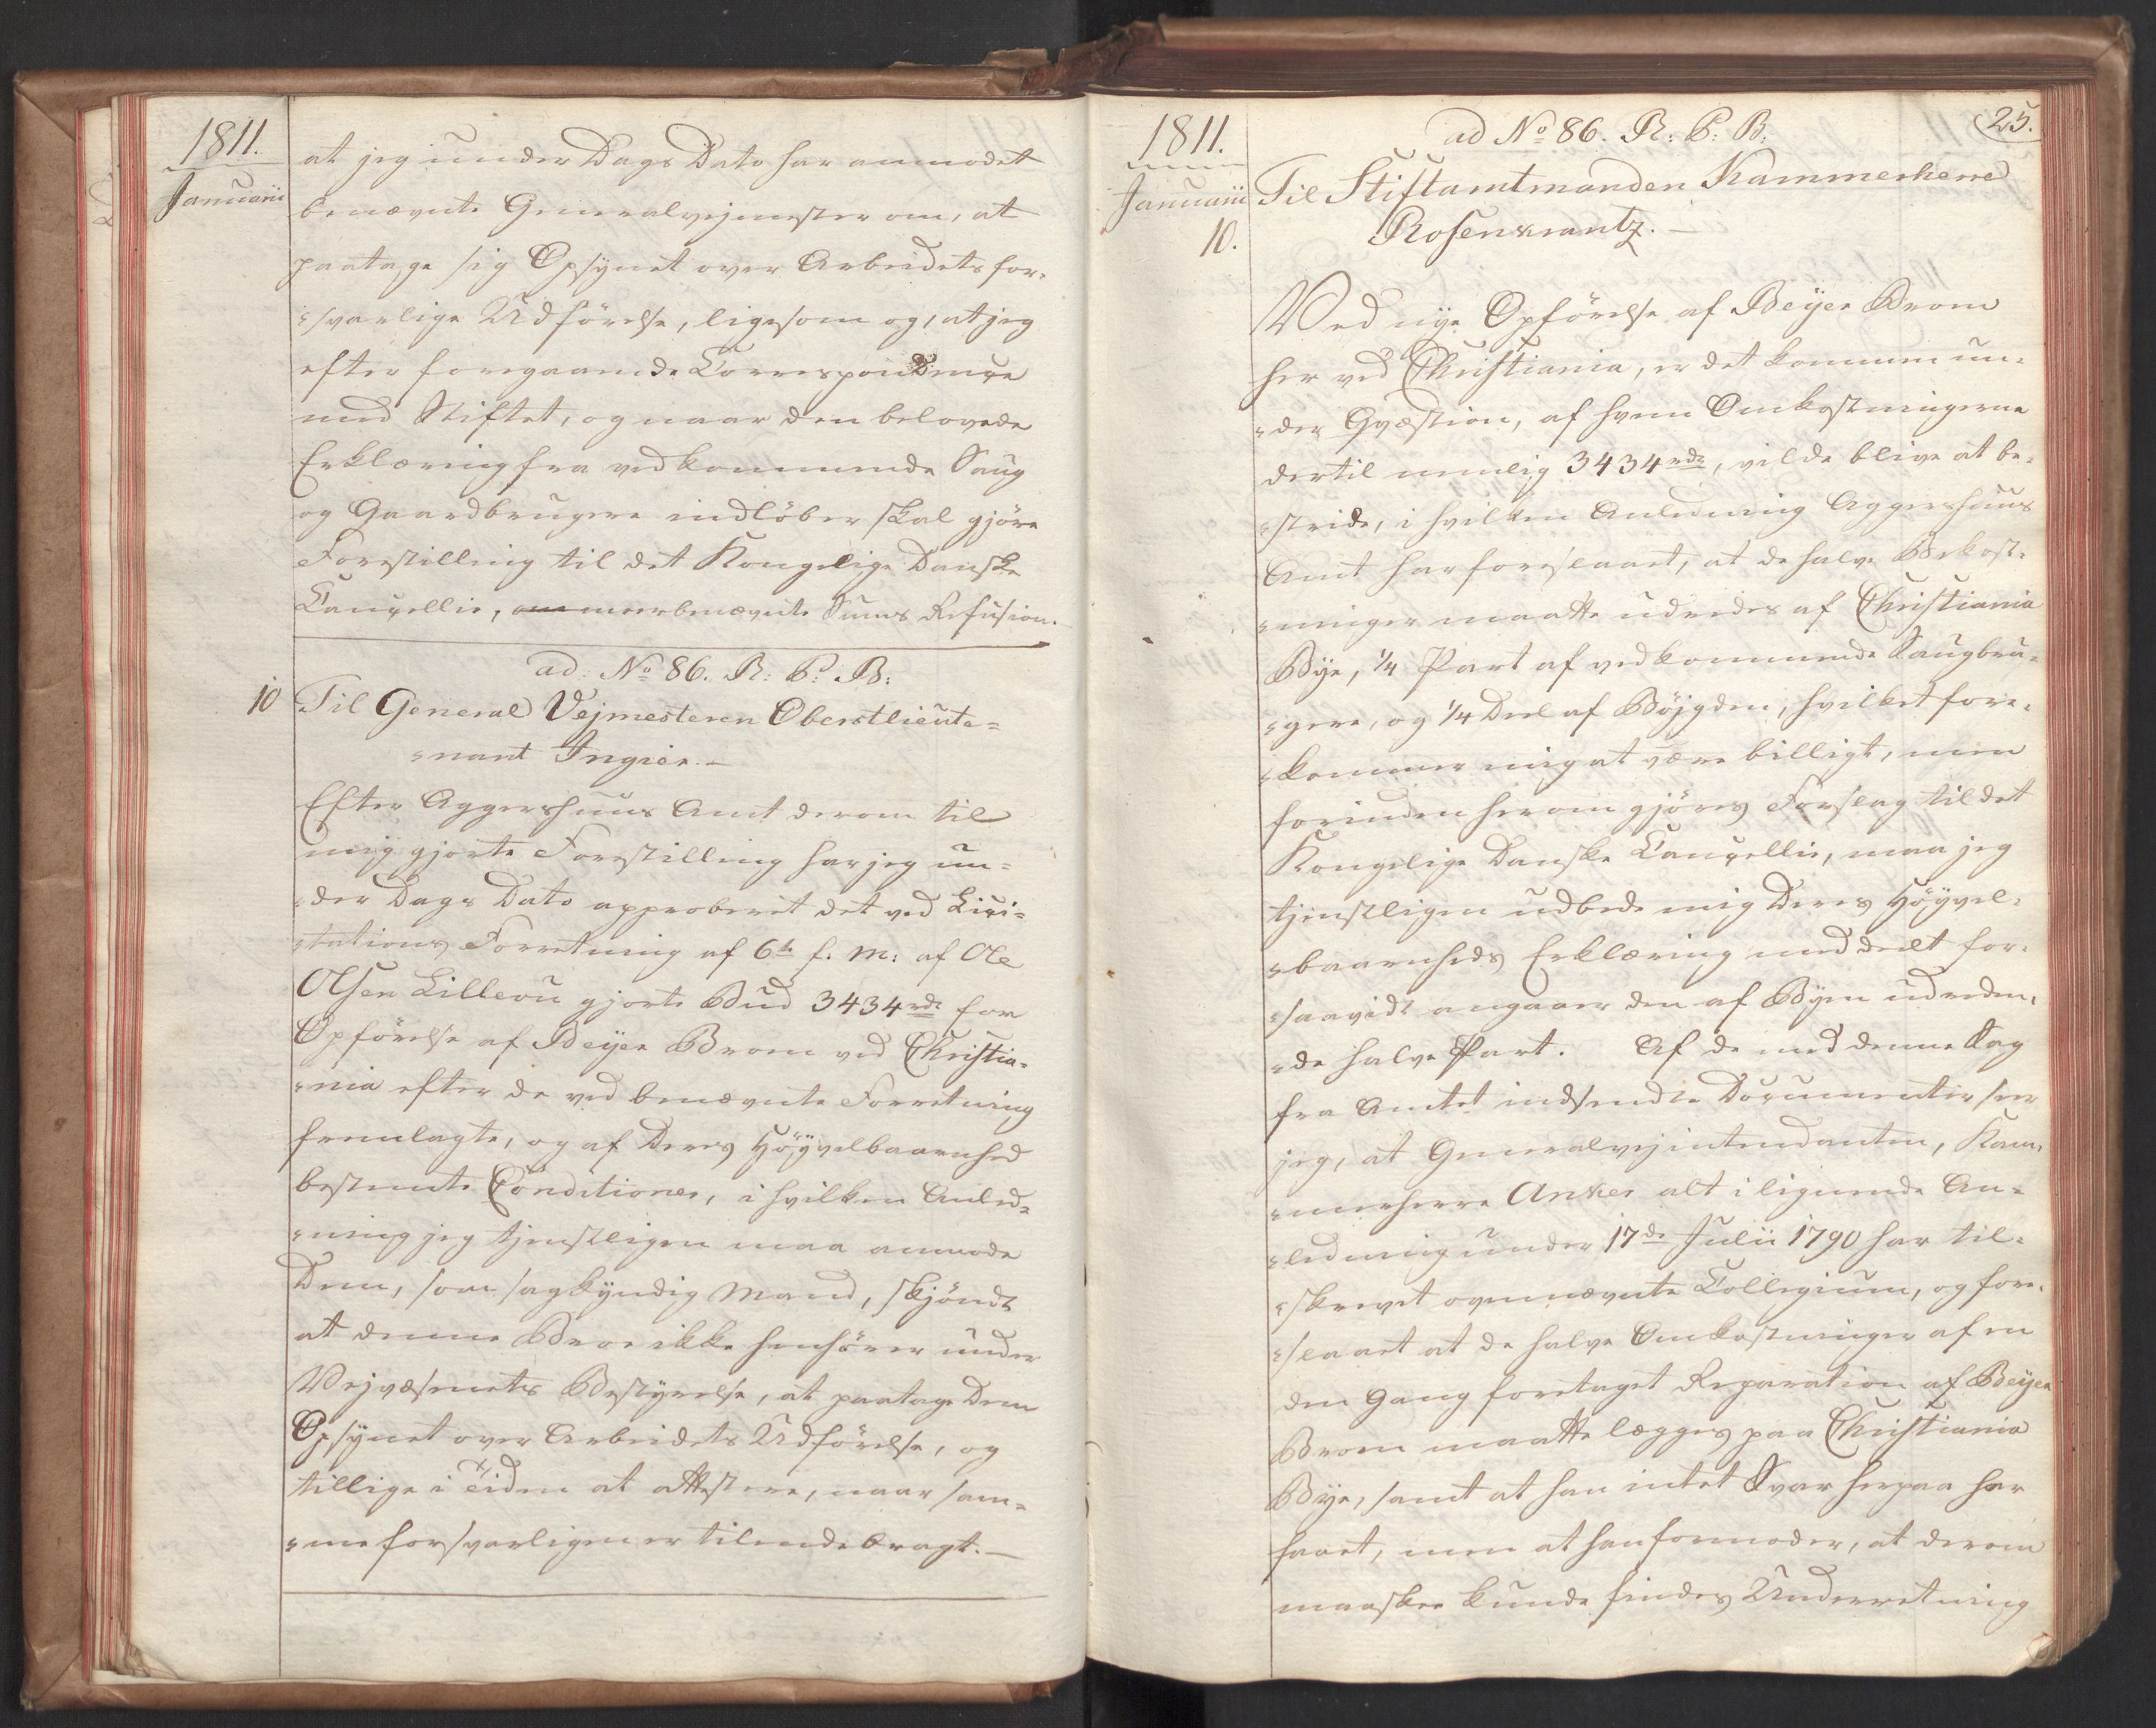 1811.
Januarii
at jeg under Dags Dato har anmodet
benævnte Generalvejmester om, at
paatage sig Opsynet over Arbeidets for-
-svarlige Udförelse, ligesom og, at jeg
efter foregaaende Correspondence
med Stiftet, og naar den belovede
Erklæring fra vedkommende Saug
og Gaardbrugere indlöber skal gjöre
Forestilling til det Kongelige Danske
Cancellie, om meerbenævnte Sums Refusion.
ad: No 86. R: P: B:
10 Til General Vejmesteren Oberstlieute=
=nant Ingier.-
Efter Aggershuus Amt derom til
mig gjorte Forestilling har jeg un=
=der Dags Dato approberet det ved Lici=
=tations Forretning af 6te f. M: af Ole
Olsen Lilleou gjorte Bud 3434 rdr for
Opförelse af Beyer Broen ved Christia=
=nia efter de ved benævnte Forretning
fremlagte, og af Deres Höyvelbaarenhed
bestemte Conditioner, i hvilken Anled=
=ning jeg tjenstligen maa anmode
Dem, som sagkyndig Mand, skjöndt
at denne Broe ikke henhörer under
Vejvæsenets Bestyrelse, at paatage Dem
Opsynet over Arbeidets Udförelse, og
tillige i Tiden at attestere, naar sam=
=me forsvarligen er tilendebragt.-
1811.
Januarii
10.
25.
ad No 86. R: P: B.
Til Stiftamtmanden Kammerherre
Rosenkrantz.-
Ved nye Opförelse af Beyer Broen
her ved Christiania, er det kommen un=
=der Qvæstion, af hvem Omkostningerne
dertil nemlig 3434 rdr, vilde blive at be=
=stride, i hvilken Anledning Aggershuus
Amt har foreslaaet, at de halve Bekost=
=ninger maatte udredes af Christiania
Bye, 1/4 Part af vedkommende Saugbru=
=gere, og 1/4 Deel af Böjgden, hvilket fore=
=kommer mig at være billigt, men
forinden herom gjöres Forslag til det
Kongelige Danske Cancellie, maa jeg
tjenstligen udbede mig Deres Höyvel=
=baarenheds Erklæring meddeelt for=
=saavidt angaaer den af Byen udreden=
=de halve Part. Af de med denne Sag
fra Amtet indsendte Documenter seer
jeg, at Generalvejintendanten, Kam=
=merherre Anker alt i lignende An=
=ledning under 17de Julii 1790 har til=
=skrevet ovennævnte Collegium, og fore=
=slaaet at de halve Omkostninger af en
den Gang foretaget Reparation af Beyer
Broen maatte lægges paa Christiania
Bye, samt at han intet Svar herpaa har
havet, men at han formoder, at derom
maaskee kunde findes Underretning